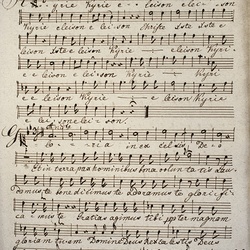 Kyrie Kyrie e leison eley
Kyrie eleison e lei son Christe iste iste e
leison iste e leison Kyrie eleison
e e leison e lei son Kyrie
e leison e leison Kyrie
e lei son elei son.
Gloria in ex celsis De o
Et in terra pax hominibus bonae volun ta tis Lau
Damus te bene di cimus te A doramus te glorifi
ca mus te Gratias agimus tibi propter magnam
gloriam tuam Domine Deus Rex caelestis Deus